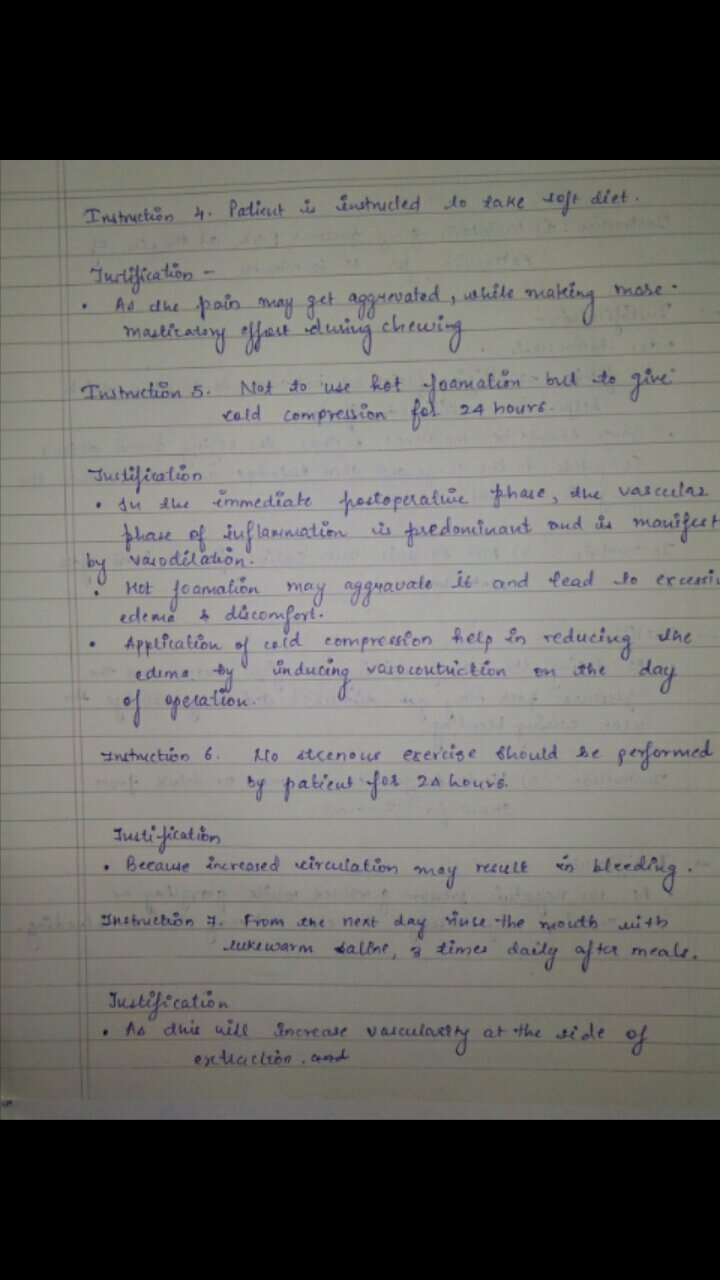 Instruction 4. Patient is instructed to take soft diet.
Justification -
• As the pain may get aggrevated, while making more
masticatory effort during chewing
Instruction 5. Not to use hot foamation but to give
cold compression for 24 hours.
Justification
• In the immediate postoperative phase, the vascular
phase of inflammation is predominant and is manifest
by vasodilation.
• Hot foamation may aggravate it and lead to excessiv
edema & discomfort.
• Application of cold compression help in reducing the
edema by inducing vasocontriction on the day
of operation.
Instruction 6. No strenous exercise should be performed
by patient for 24 hours.
Justification
• Because increased circulation may result in bleeding.
Instruction 7. From the next day rinse the mouth with
lukewarm saline, 3 times daily after meals.
Justification
• As this will increase vascularity at the side of
extraction. and